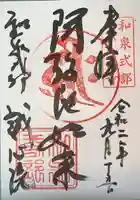 奉拝
令和二年九月
阿弥陀如来
和泉式部
和泉式部
誠心院